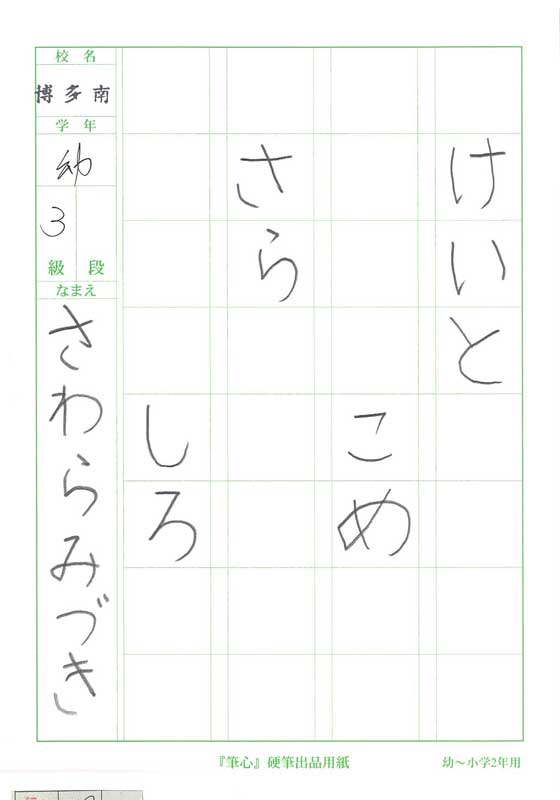 けいと
こめ
さら
しろ
校名
博多南
学年
幼
3
級 段
なまえ
さわらみづき
『筆心』硬筆出品用紙
幼～小学2年用